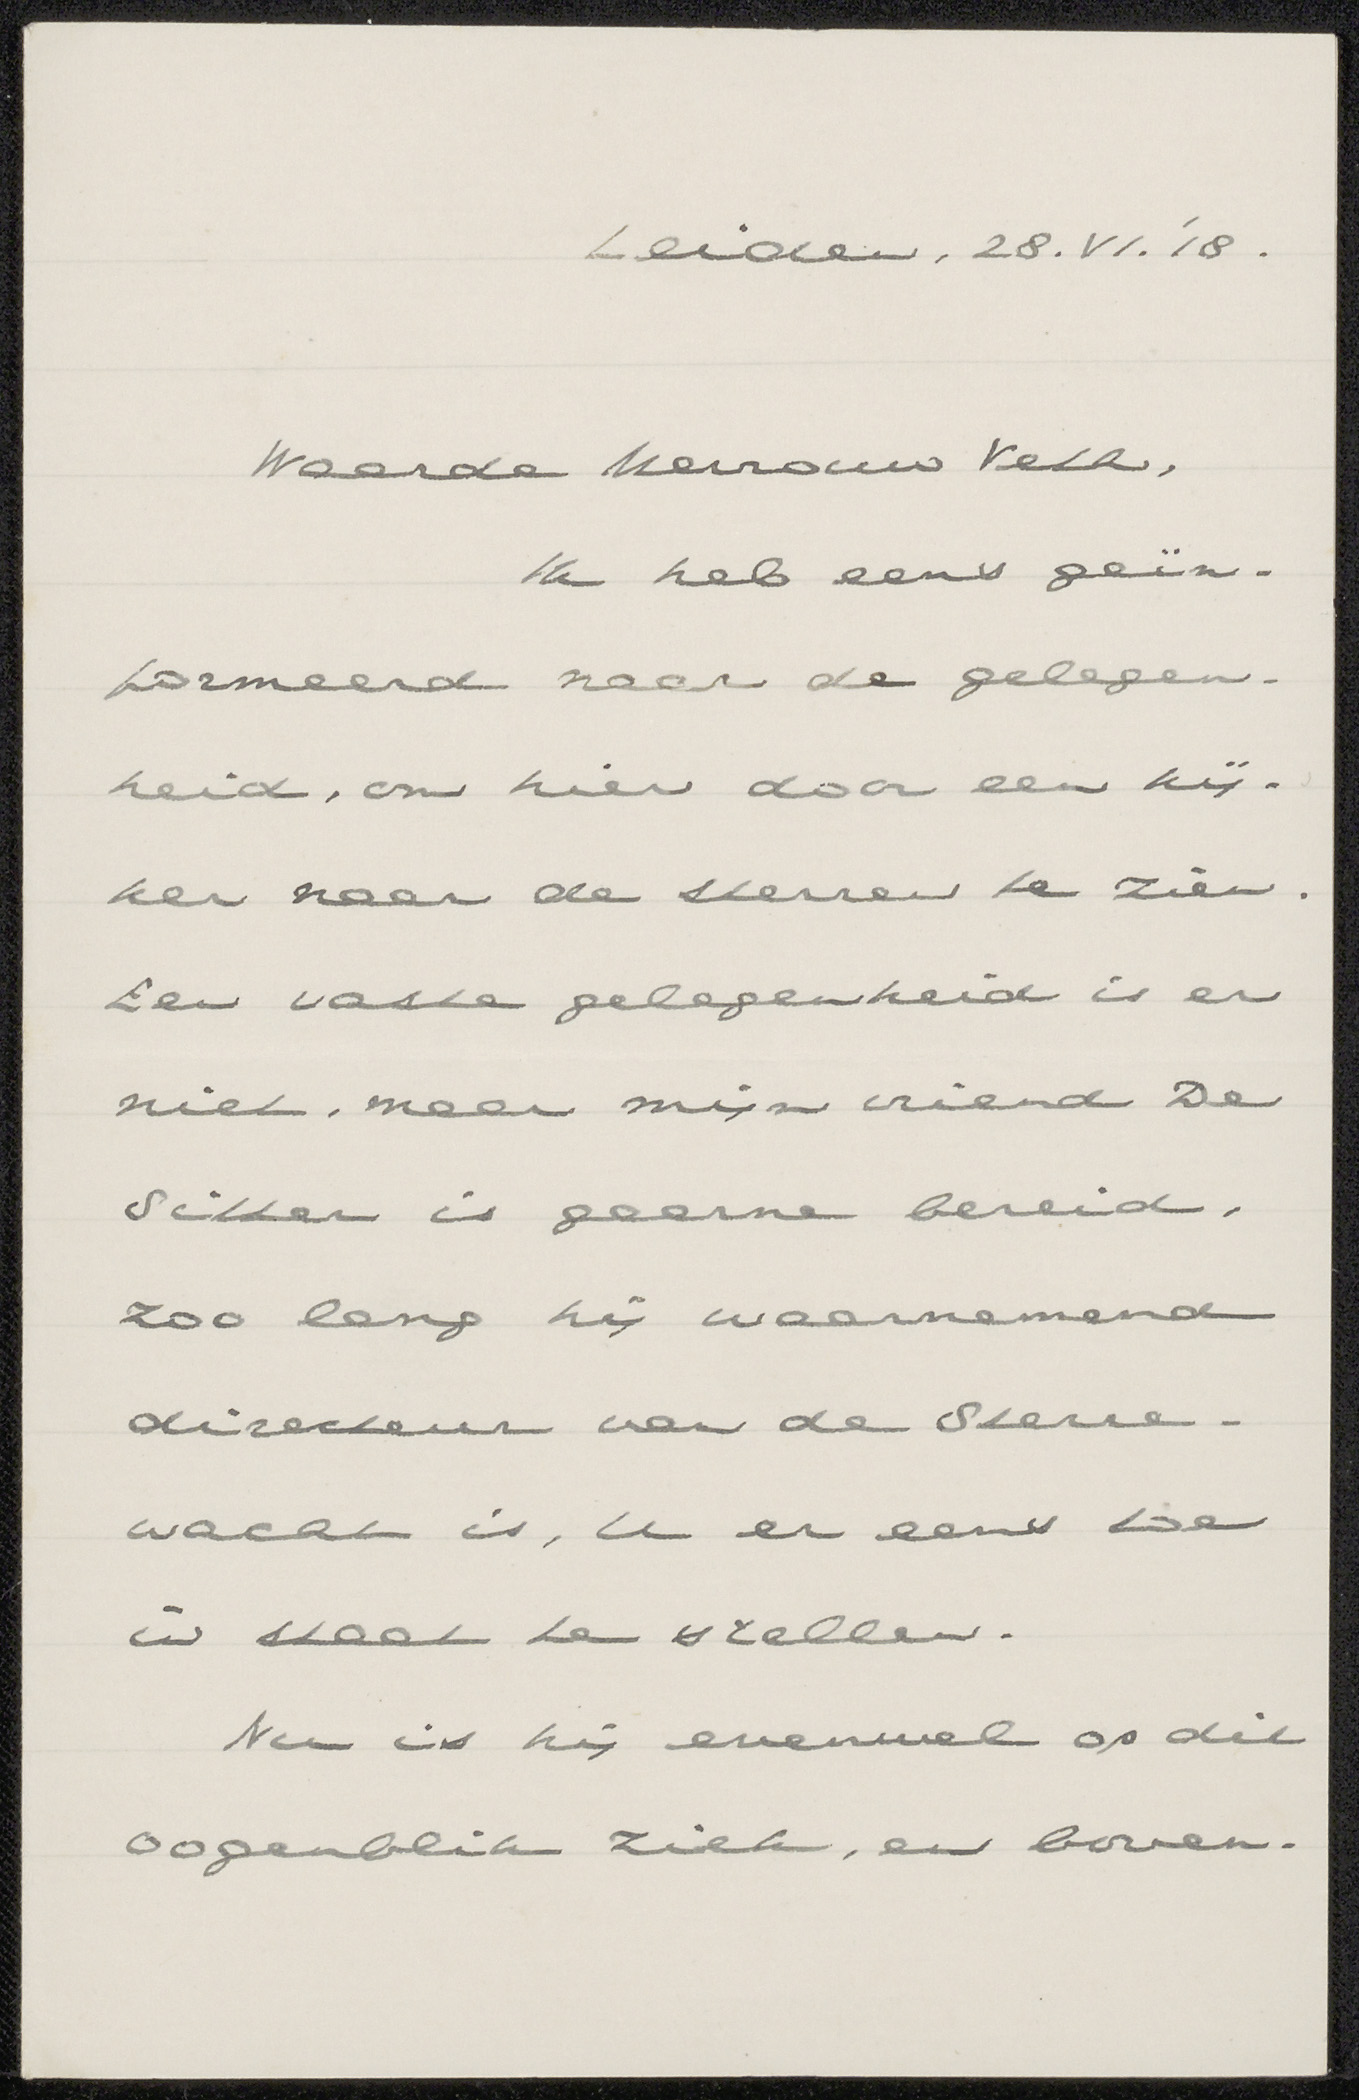 Leiden, 28.VI.'18.
Waarde Mevrouw Veth,
Ik heb eens geïn-
formeerd naar de gelegen-
heid, om hier door een kij-
ker naar de sterren te zien.
Een vaste gelegenheid is er
niet, maar mijn vriend De
Sitter is gaarne bereid,
zoo lang hij waarnemend
directeur van de Sterre-
wacht is, U er eens toe
in staat te stellen.
Nu is hij evenwel op dit
oogenblik ziek, en boven-